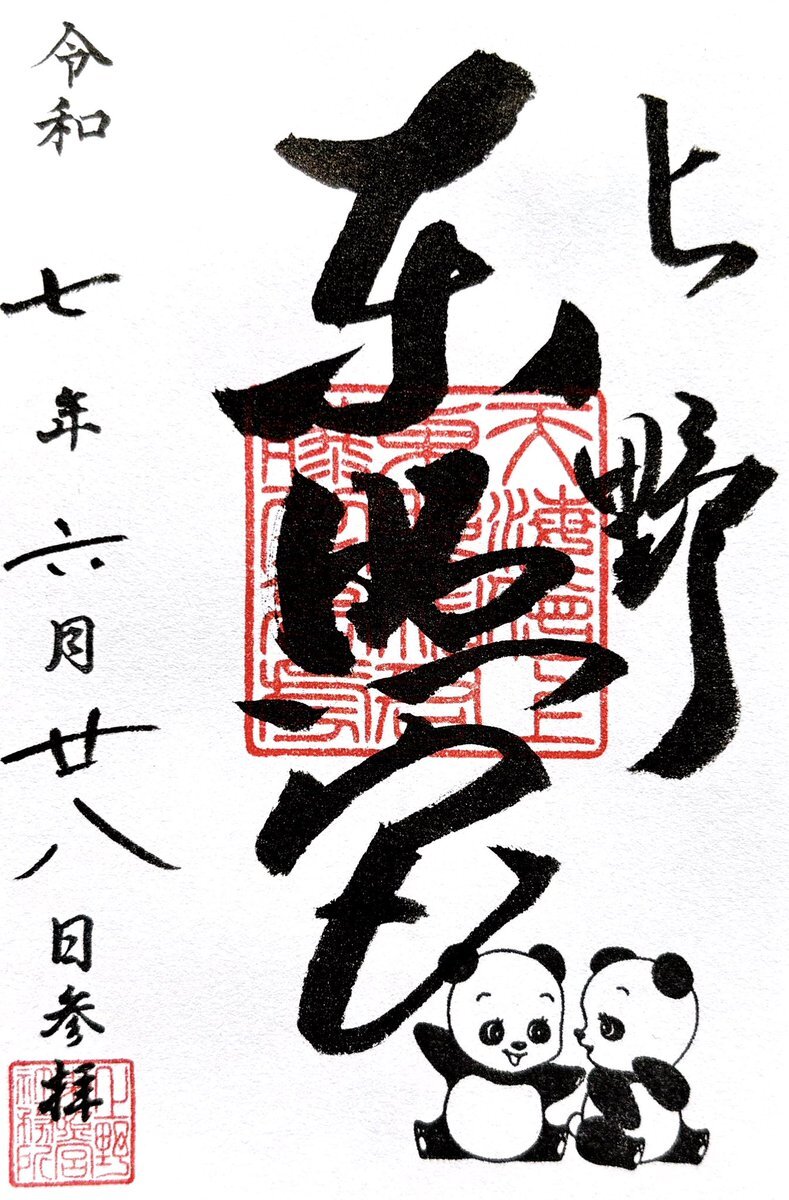 上野
東照宮
令和 七年 六月 廿八日参拝